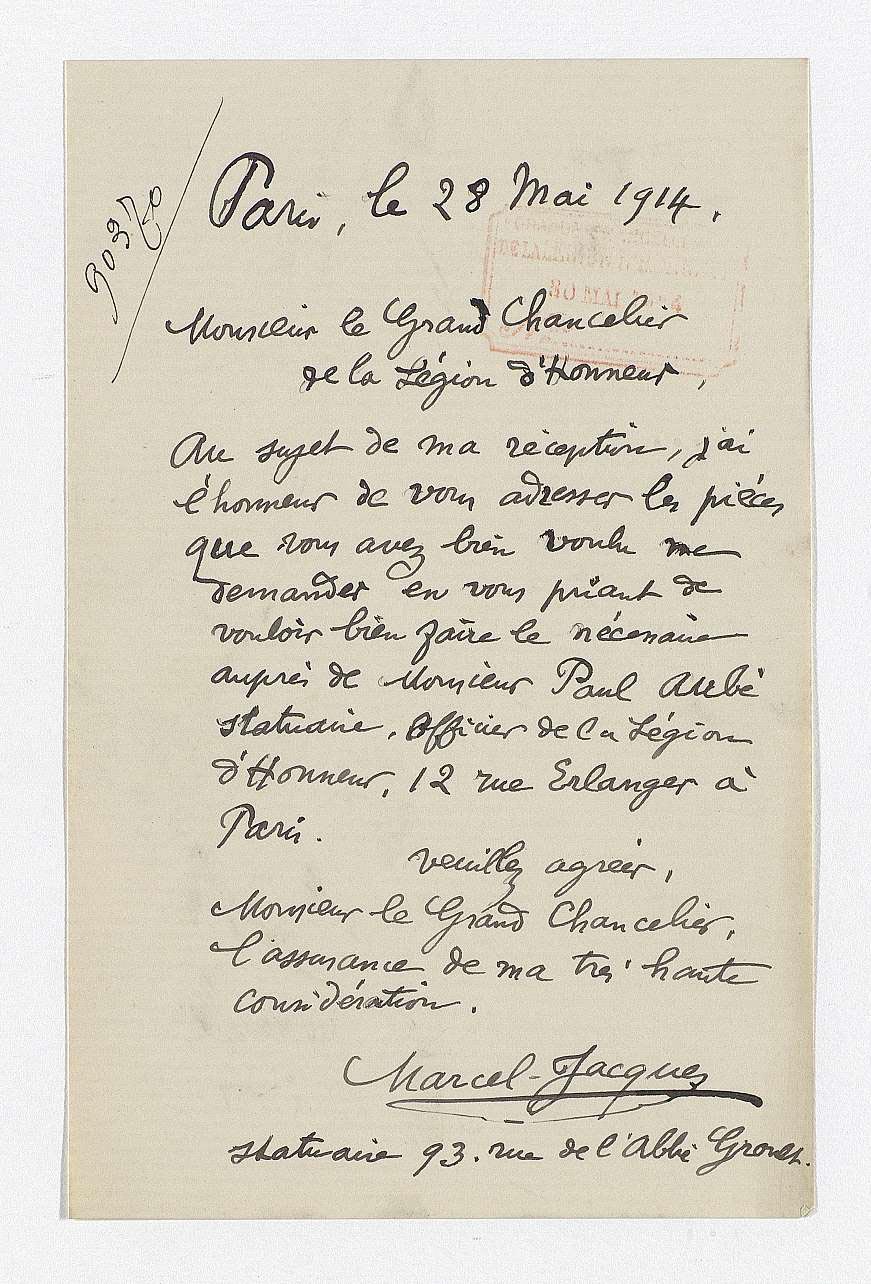 Paris, le 28 Mai 1914.
30 MAI
Monsieur le Grand Chancelier
de la Légion d'Honneur,
Au sujet de ma réception, j'ai
l'honneur de vous adresser les pièces
que vous avez bien voulu me
demander en vous priant de
vouloir bien faire le nécessaire
auprès de Monsieur Paul Aubé
statuaire, Officier de la Légion
d'Honneur, 12 rue Erlanger à
Paris.
Veuillez agréer,
Monsieur le Grand Chancelier,
l'assurance de ma très haute
considération.
Marcel-Jacques
statuaire 93. rue de l'Abbé Groult.